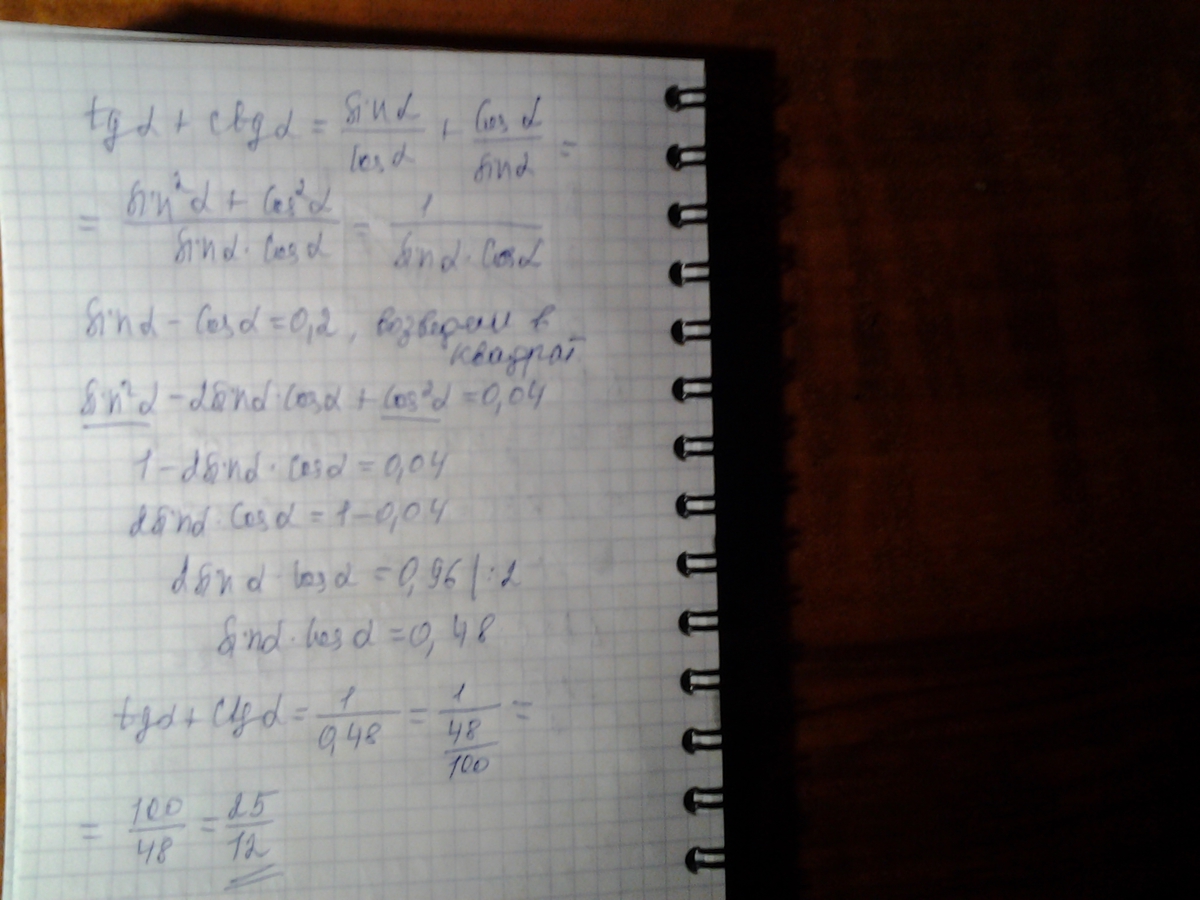 tgα + ctgα = sinα/cosα + cosα/sinα =
= (sin²α + cos²α)/(sinα · cosα) = 1/(sinα · cosα)
sinα - cosα = 0,2, возведем в
квадрат
sin²α - 2sinα·cosα + cos²α = 0,04
1 - 2sinα · cosα = 0,04
2sinα · cosα = 1 - 0,04
2sinα · cosα = 0,96 | : 2
sinα · cosα = 0,48
tgα + ctgα = 1/0,48 = 1/(48/100) =
= 100/48 = 25/12